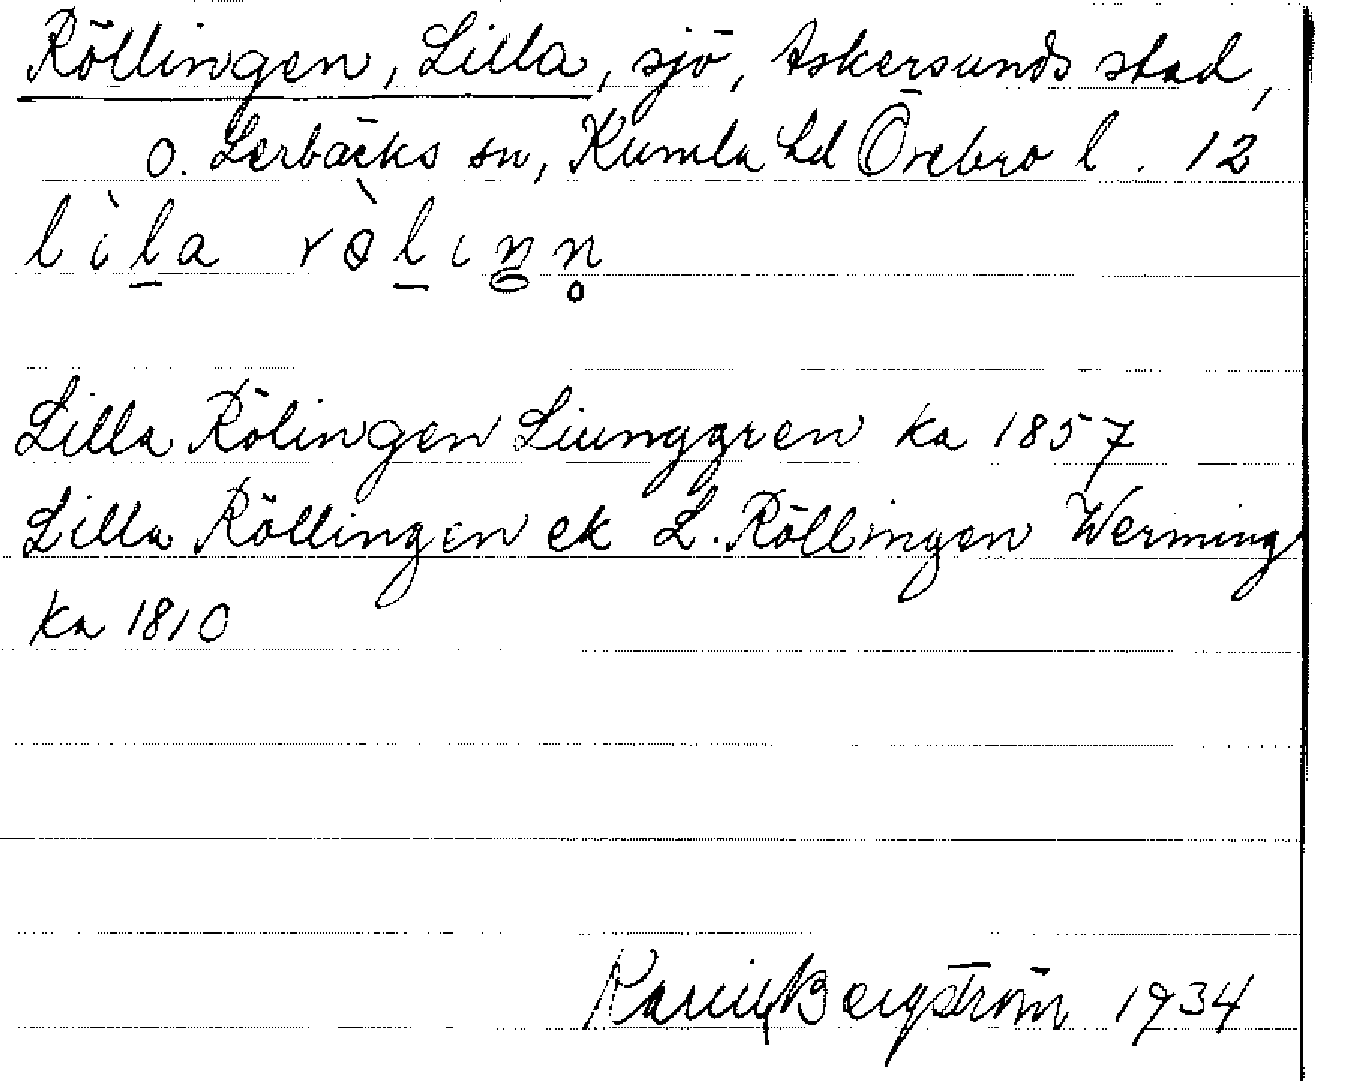 Röllingen, Lilla, sjö, Askersunds stad,
o. Lerbäcks sn, Kumla hd Örebro l. 12
lìla rø̀lıŋn̥
Lilla Rölingen Liunggren ka 1857
Lilla Röllingen ek L. Röllingen Werming
ka 1810
Karin Bergström 1934